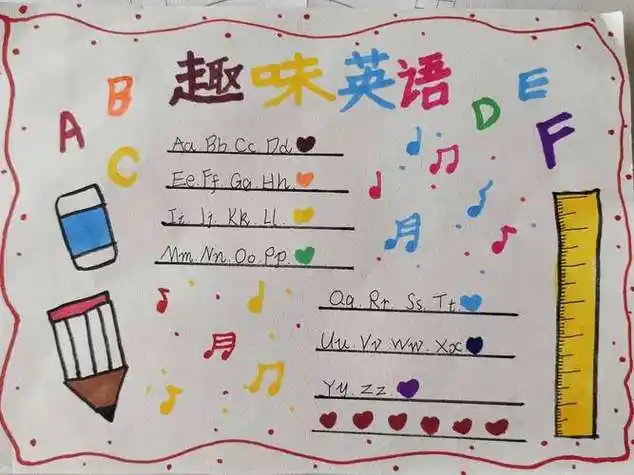 趣味英语
A B C D E F
Aa Bb Cc Dd
Ee Ff Gg Hh
Ii Jj Kk Ll
Mm Nn Oo Pp
Qq Rr Ss Tt
Uu Vv Ww Xx
Yy Zz